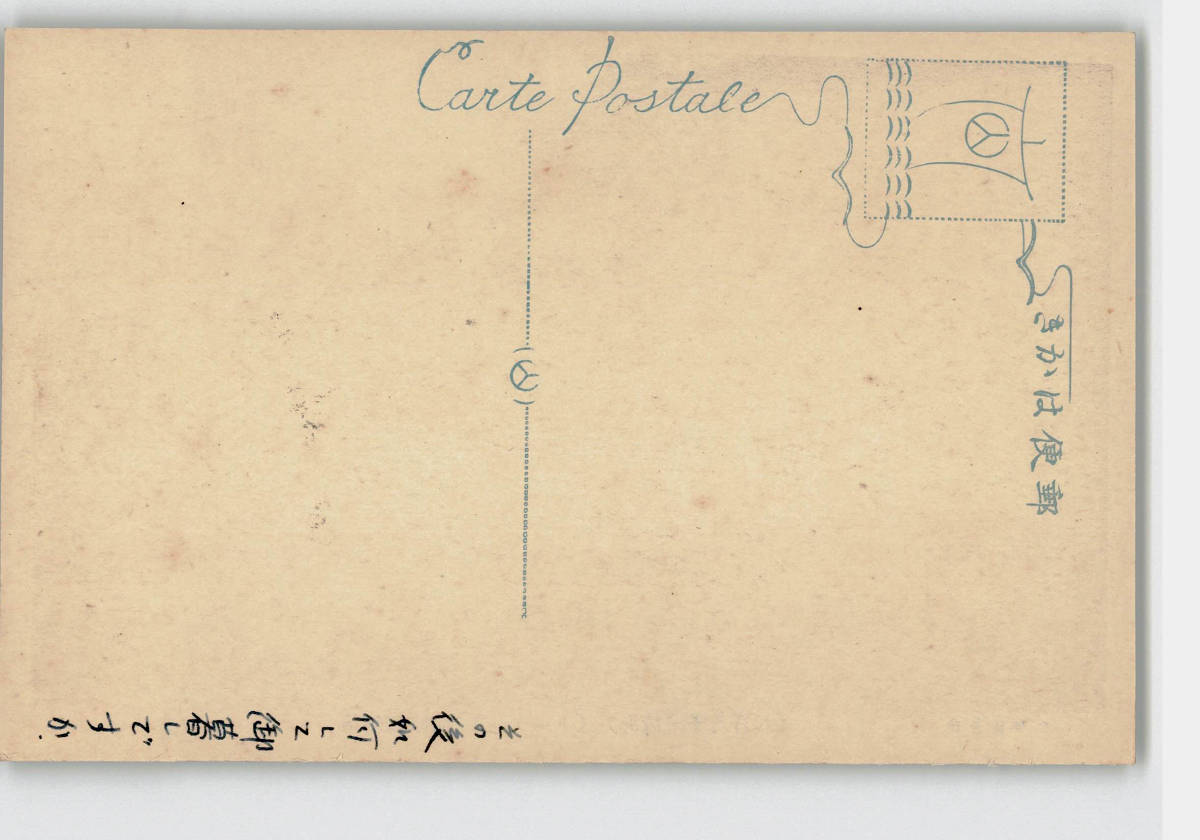 Carte Postale
郵便はかき
その後如何して御暮しですか